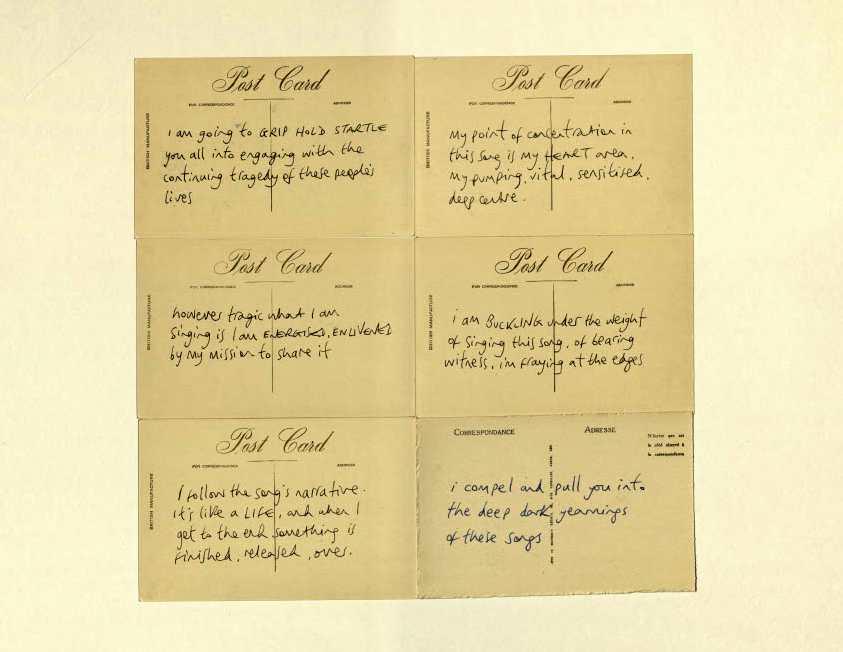 Post Card
FOR CORRESPONDENCE
ADDRESS
BRITISH MANUFACTURE
I am going to GRIP HOLD STARTLE
you all into engaging with the
continuing tragedy of these people's
lives
Post Card
FOR CORRESPONDENCE
ADDRESS
BRITISH MANUFACTURE
My point of concentration in
this song is my HEART area,
my pumping, vital, sensitised,
deep centre.
Post Card
FOR CORRESPONDENCE
ADDRESS
BRITISH MANUFACTURE
however tragic what I am
singing is I am ENERGISED, ENLIVENED
by my mission to share it
Post Card
FOR CORRESPONDENCE
ADDRESS
BRITISH MANUFACTURE
i am BUCKLING under the weight
of singing this song, of bearing
witness, i'm fraying at the edges
Post Card
FOR CORRESPONDENCE
ADDRESS
BRITISH MANUFACTURE
I follow the song's narrative.
It's like a LIFE, and when I
get to the end something is
finished, released, over.
CORRESPONDANCE
ADRESSE
N'écrire que sur
le côté réservé à
la correspondance
i compel and pull you into
the deep dark yearnings
of these songs